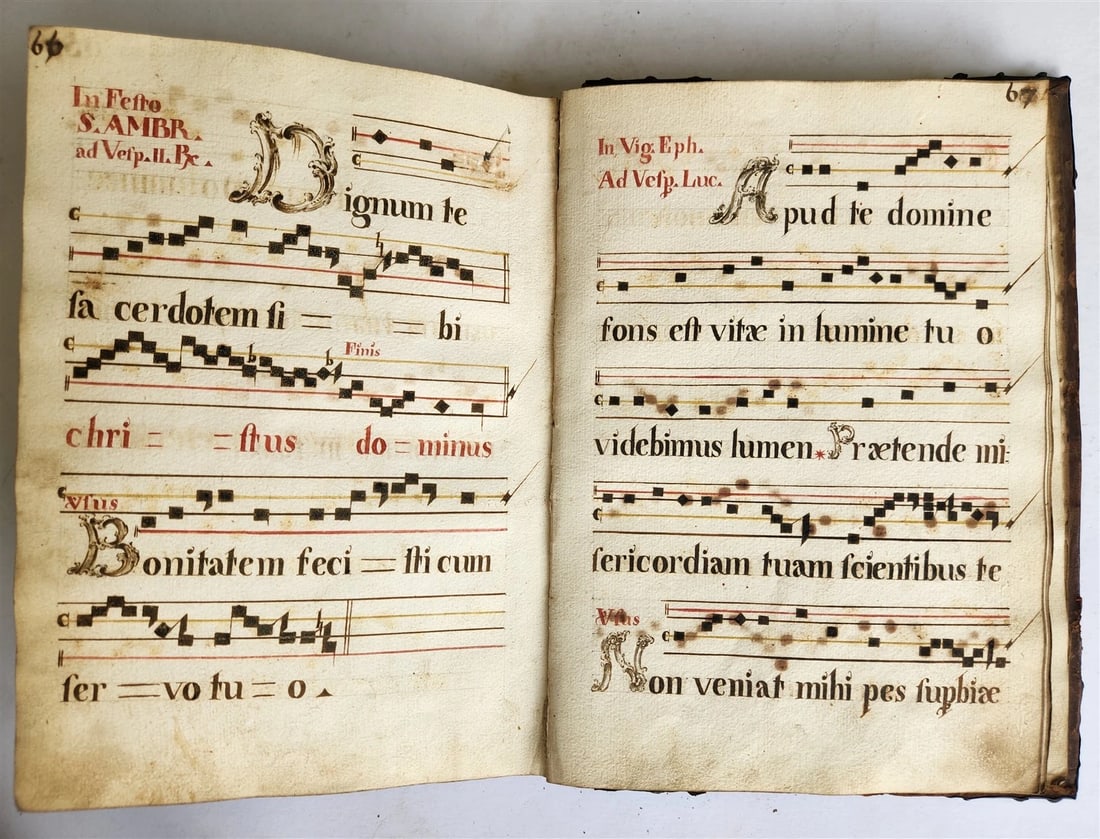 66
In Festo
S. AMBR.
ad Vesp. II. ℞.
Dignum te
sa cerdotem si = = bi
Finis
chri = = stus do = minus
Vsus
Bonitatem feci = sti cum
ser = vo tu = o.
67
In Vig. Eph.
Ad Vesp. Luc.
Apud te domine
fons est vitæ in lumine tu o
videbimus lumen * Prætende mi=
sericordiam tuam scientibus te
Vsus
Non veniat mihi pes supbiæ